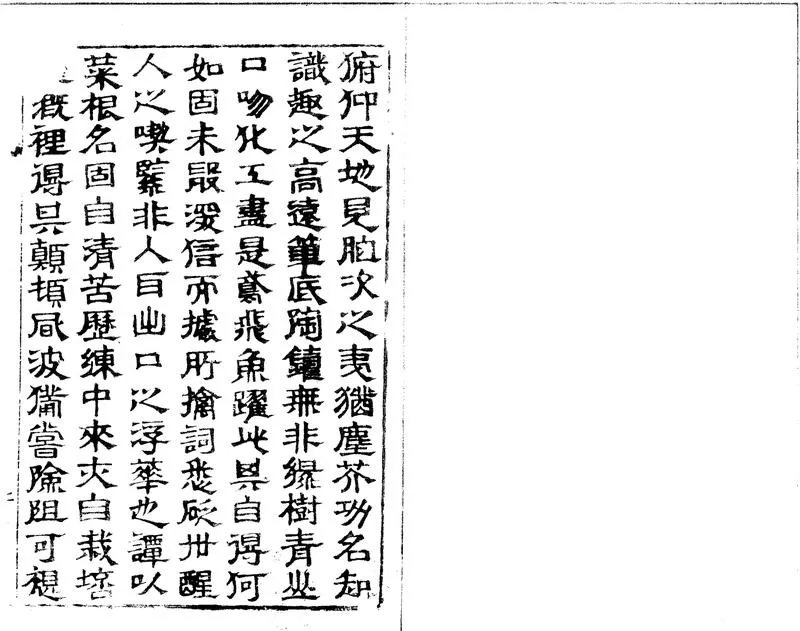 俯仰天地見胸次之夷猶塵芥功名知
識趣之高遠筆底陶鑄無非綠樹青山
口吻化工盡是鳶飛魚躍此其自得何
如固未能深信而據所摛詞悉砭世醒
人之喫緊非入耳出口之浮華也譚以
菜根名固自清苦歷練中來亦自栽培
溉裡得其顛頓風波備嘗險阻可想